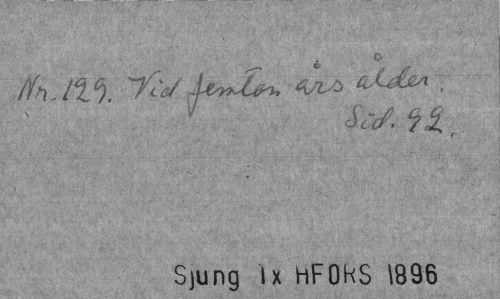 Nr. 129. Vid femton års ålder.
Sid. 92.
Sjung Tx HFORS 1896